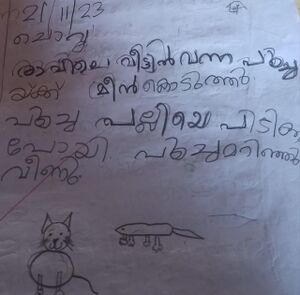 21/11/23
ചൊവ്വ
രാവിലെ വീട്ടിൽ വന്ന പൂച്ച
യ്ക്ക് മീൻ കൊടുത്തു
പൂച്ച പല്ലിയെ പിടിക്ക
പോയി. പൂച്ച മറിഞ്ഞു
വീണു.